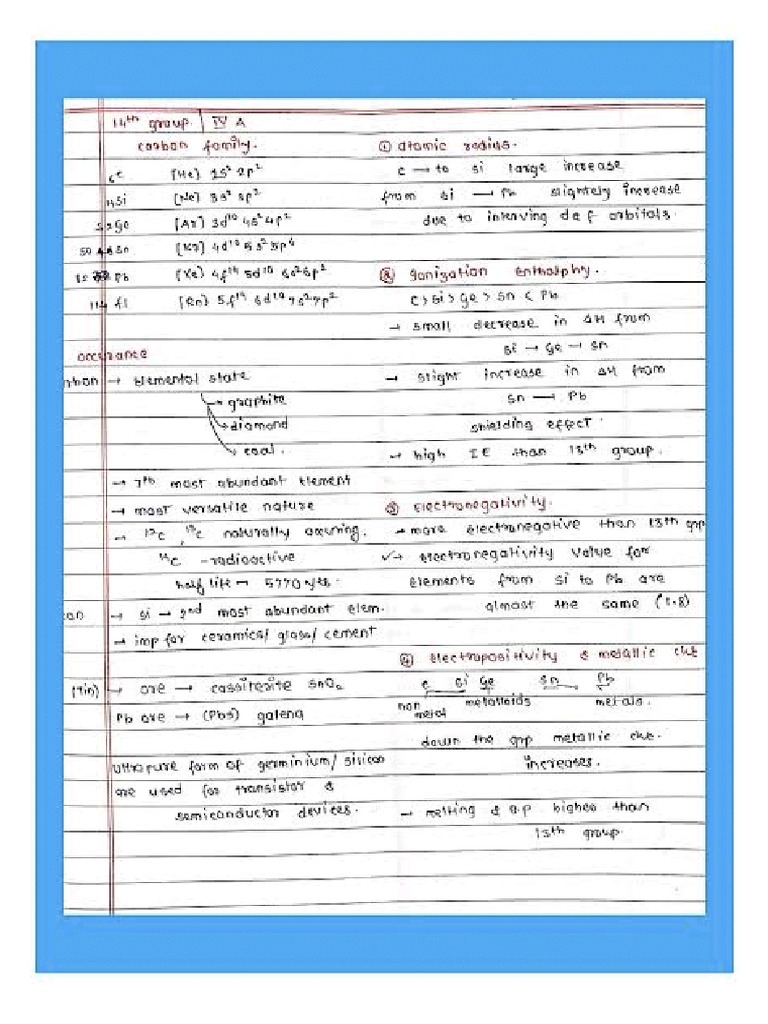 14th group | IV A
carbon family.
6C [He] 2s² 2p²
14Si [Ne] 3s² 3p²
32Ge [Ar] 3d¹⁰ 4s² 4p²
50 Sn [Kr] 4d¹⁰ 5s² 5p²
82 Pb [Xe] 4f¹⁴ 5d¹⁰ 6s² 6p²
114 fl [Rn] 5f¹⁴ 6d¹⁰ 7s² 7p²
occurance
→ Elemental state
→ graphite
→ diamond
→ coal.
→ 7th most abundant element
→ most versatile nature
→ ¹²C, ¹³C naturally occuring.
¹⁴C - radioactive
half life — 5770 yrs.
→ si → 2nd most abundant elem.
→ imp for ceramics/ glass/ cement
(Tin) → ore → cassiterite SnO₂
Pb ore → (PbS) galena
ultrapure form of germinium/ silicon
are used for transistor &
semiconductor devices.
① atomic radius.
C → to si large increase
from si → Pb slightely increase
due to interving d & f orbitals.
② Ionization enthalphy.
C > si > Ge > Sn < Pb
→ small decrease in ΔH from
si → Ge → Sn
→ slight increase in ΔH from
Sn → Pb
shielding effect.
→ high IE than 13th group.
③ Electronegativity.
→ more electronegative than 13th grp
→ electronegativity value for
elements from si to Pb are
almost the same (1.8)
④ Electropositivity & metallic
C Si Ge Sn Pb
non metal metalloids metals.
down the grp metallic
increases.
→ melting & b.p higher than
13th group.